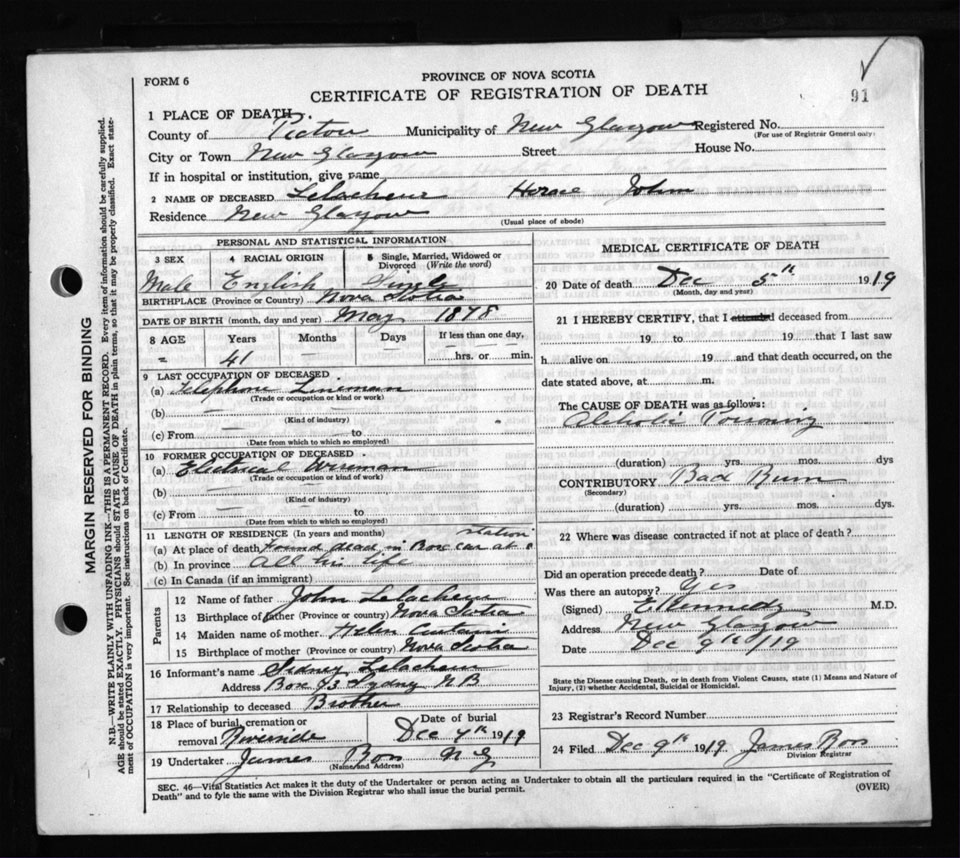 FORM 6
PROVINCE OF NOVA SCOTIA
CERTIFICATE OF REGISTRATION OF DEATH
91
1 PLACE OF DEATH
County of Pictou Municipality of New Glasgow Registered No.
(For use of Registrar General only)
City or Town New Glasgow Street House No.
If in hospital or institution, give name
2 NAME OF DECEASED Lelacheur Horace John
Residence New Glasgow
(Usual place of abode)
PERSONAL AND STATISTICAL INFORMATION
3 SEX 4 RACIAL ORIGIN 5 Single, Married, Widowed or Divorced (Write the word)
Male English Single
BIRTHPLACE (Province or Country) Nova Scotia
DATE OF BIRTH (month, day and year) May 1878
8 AGE Years Months Days If less than one day,
= 41 — hrs. or min.
9 LAST OCCUPATION OF DECEASED
(a) Telephone Lineman
(Trade or occupation or kind or work)
(b) —
(Kind of industry)
(c) From — to
(Date from which to which so employed)
10 FORMER OCCUPATION OF DECEASED
(a) Electrical Wireman
(Trade or occupation or kind of work)
(b) —
(Kind of industry)
(c) From — to
(Date from which to which so employed)
11 LENGTH OF RESIDENCE (In years and months) station
(a) At place of death Found dead in Box car at
(b) In province All his life
(c) In Canada (if an immigrant)
Parents
12 Name of father John Lelacheur
13 Birthplace of father (Province or country) Nova Scotia
14 Maiden name of mother Helen
15 Birthplace of mother (Province or country) Nova Scotia
16 Informant's name Sidney Lelacheur
Address Box 73 Sydney NB
17 Relationship to deceased Brother
18 Place of burial, cremation or removal Riverside
Date of burial Dec 7th 1919
19 Undertaker James Ross N G
(Name and Address)
MEDICAL CERTIFICATE OF DEATH
20 Date of death Dec 5th 1919
(Month, day and year)
21 I HEREBY CERTIFY, that I attended deceased from
19 to 19 that I last saw
h alive on 19 and that death occurred, on the
date stated above, at m.
The CAUSE OF DEATH was as follows:
Alcholic Poisoning
(duration) yrs. mos. dys
CONTRIBUTORY Bad Rum
(Secondary)
(duration) yrs. mos. dys.
22 Where was disease contracted if not at place of death?
Did an operation precede death? Date of
Was there an autopsy? Yes
(Signed) E Kennedy M.D.
Address New Glasgow
Date Dec 9th /19
State the Disease causing Death, or in death from Violent Causes, state (1) Means and Nature of
Injury, (2) whether Accidental, Suicidal or Homicidal.
23 Registrar's Record Number
24 Filed Dec 9th 1919 James Ross
Division Registrar
SEC. 46—Vital Statistics Act makes it the duty of the Undertaker or person acting as Undertaker to obtain all the particulars required in the "Certificate of Registration of
Death" and to fyle the same with the Division Registrar who shall issue the burial permit.
(OVER)
MARGIN RESERVED FOR BINDING
N.B.—WRITE PLAINLY WITH UNFADING INK—THIS IS A PERMANENT RECORD. Every item of information should be carefully supplied.
AGE should be stated EXACTLY. PHYSICIANS should STATE CAUSE OF DEATH in plain terms, so that it may be properly classified. Exact statement
of OCCUPATION is very important. See instructions on back of Certificate.